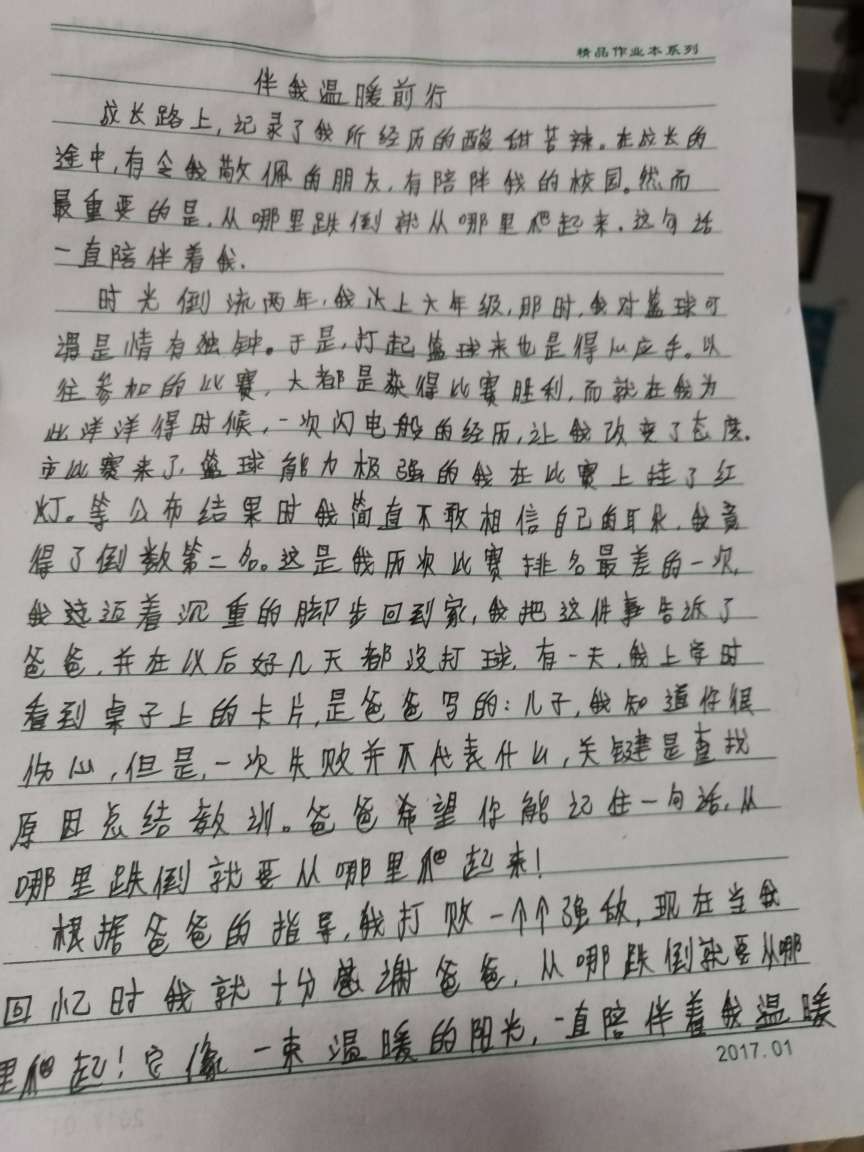 精品作业本系列
伴我温暖前行
成长路上,记录了我所经历的酸甜苦辣。在成长的
途中,有令我敬佩的朋友,有陪伴我的校园。然而
最重要的是,从哪里跌倒就从哪里爬起来,这句话
一直陪伴着我.
时光倒流两年,我次上六年级,那时,我对篮球可
谓是情有独钟。于是,打起篮球来也是得心应手。以
往参加的比赛,大都是获得比赛胜利,而就在我为
此洋洋得时候,一次闪电般的经历,让我改变了态度.
市比赛来了,篮球能力极强的我在比赛上挂了红
灯。等公布结果时我简直不敢相信自己的耳朵,我竟
得了倒数第二名。这是我历次比赛排名最差的一次,
我迈着沉重的脚步回到家,我把这件事告诉了
爸爸,并在以后好几天都没打球,有一天,我上学时
看到桌子上的卡片,是爸爸写的:儿子,我知道你很
伤心,但是,一次失败并不代表什么,关键是查找
原因总结教训。爸爸希望你能记住一句话,从
哪里跌倒就要从哪里爬起来!
根据爸爸的指导,我打败一个个强敌,现在当我
回忆时我就十分感谢爸爸,从哪跌倒就要从哪
里爬起!它像一束温暖的阳光,一直陪伴着我温暖
2017.01